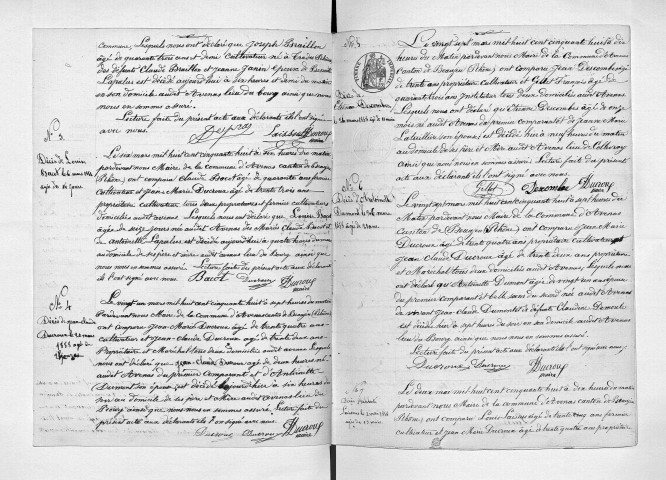 commune, Lesquels nous ont déclaré que Joseph Brailler
âgé de quarante trois ans et demi Cultivateur né à
des défunts Claude Brailler et Jeanne
Lapalus est décédé aujourd'hui à dix heures et demi du matin
en son domicile audit Avenas lieu du bourg ainsi que nous
nous en sommes assuré.
Lecture faite du présent acte aux déclarants ils l'ont signé
avec nous.
Ducroux
maire
N° 3
Décès de Louis
Bacot le 6 mars 1858
âgé de 16 jours
Le six mars mil huit cent cinquante huit à six heures du matin
pardevant nous Maire de la commune d'Avenas canton de Beaujeu
(Rhône) ont comparu Claude Bacot âgé de quarante ans fermier
cultivateur et Jean Marie Ducroux âgé de trente trois ans
propriétaire cultivateur tous deux propriétaires et fermier cultivateurs
domiciliés audit Avenas. Lesquels nous ont déclaré que Louis Bacot
âgé de seize jours né audit Avenas des Mariés Claude Bacot et
de Antoinette Lapalus est décédé aujourd'hui à quatre heures du matin
au domicile de ses père et mère audit Avenas lieu du bourg ainsi que
nous nous en sommes assuré. Lecture faite du présent acte aux déclarants
ils l'ont signé avec nous. Bacot Ducroux Ducroux
maire
N° 4
Décès de Jean Claude
Ducroux le 20 mars
1858 âgé de
2 heures
Le vingt un mars mil huit cent cinquante huit à sept heures du matin
Pardevant nous Maire de la commune d'Avenas canton de Beaujeu (Rhône)
ont comparu Jean Marie Ducroux âgé de trente quatre ans
cultivateur et Jean Claude Ducroux âgé de trente deux ans
Propriétaire et Maréchal tous deux domiciliés audit Avenas Lesquels
nous ont déclaré que Jean Claude Ducroux âgé de deux heures né
audit Avenas du premier Comparant et d'Antoinette
Dumont son épouse est décédé hier à six heures du
soir au domicile de ses père et Mère audit Avenas lieu du
Bourg ainsi que nous nous en sommes assuré Lecture faite du
présent acte aux déclarants ils l'ont signé avec nous.
Ducroux Ducroux Ducroux
maire
N° 5
Décès de
Etienne Descombes
le 26 mars 1858 âgé de 11 mois
Le vingt sept mars mil huit cent cinquante huit à dix
heures du Matin pardevant nous Maire de la Commune d'Avenas
Canton de Beaujeu (Rhône) ont comparu Jean Descombes âgé
de trente ans propriétaire cultivateur et Gillet François âgé de
quarante trois ans Instituteur tous deux domiciliés audit Avenas.
Lesquels nous ont déclaré que Etienne Descombes âgé de onze
mois né audit Avenas du premier comparant et de Jeanne Marie
son épouse, est décédé hier à neuf heures du matin
au domicile de ses père et Mère audit Avenas lieu de
Ainsi que nous nous en sommes assuré. Lecture faite du présent
acte aux déclarants ils l'ont signé avec nous.
Gillet Descombe Ducroux
maire
N° 6
Décès d'Antoinette
Dumont le 26 mars
1858 âgée de 21 ans
Le vingt sept mars mil huit cent cinquante huit à sept heures du
Matin pardevant nous Maire de la Commune d'Avenas
Canton de Beaujeu (Rhône) ont comparu Jean Marie
Ducroux âgé de trente quatre ans propriétaire cultivateur et
Jean Claude Ducroux âgé de trente deux ans propriétaire
et Maréchal tous deux domiciliés audit Avenas, Lesquels nous
ont déclaré qu'Antoinette Dumont âgée de vingt un ans épouse
du premier comparant née audit Avenas
de vivant Jean Dumont et de défunte Claudine
est décédée hier à sept heures du soir en son domicile audit Avenas
lieu du Bourg ainsi que nous nous en sommes assuré.
Lecture faite du présent acte aux déclarants ils l'ont signé avec nous
Ducroux Ducroux Ducroux
maire
Le deux mai mil huit cent cinquante huit à dix heures du matin
pardevant nous Maire de la commune d'Avenas canton de Beaujeu
(Rhône) ont comparu Louis âgé de trente cinq ans fermier
cultivateur et Jean Marie Ducroux âgé de trente quatre ans propriétaire